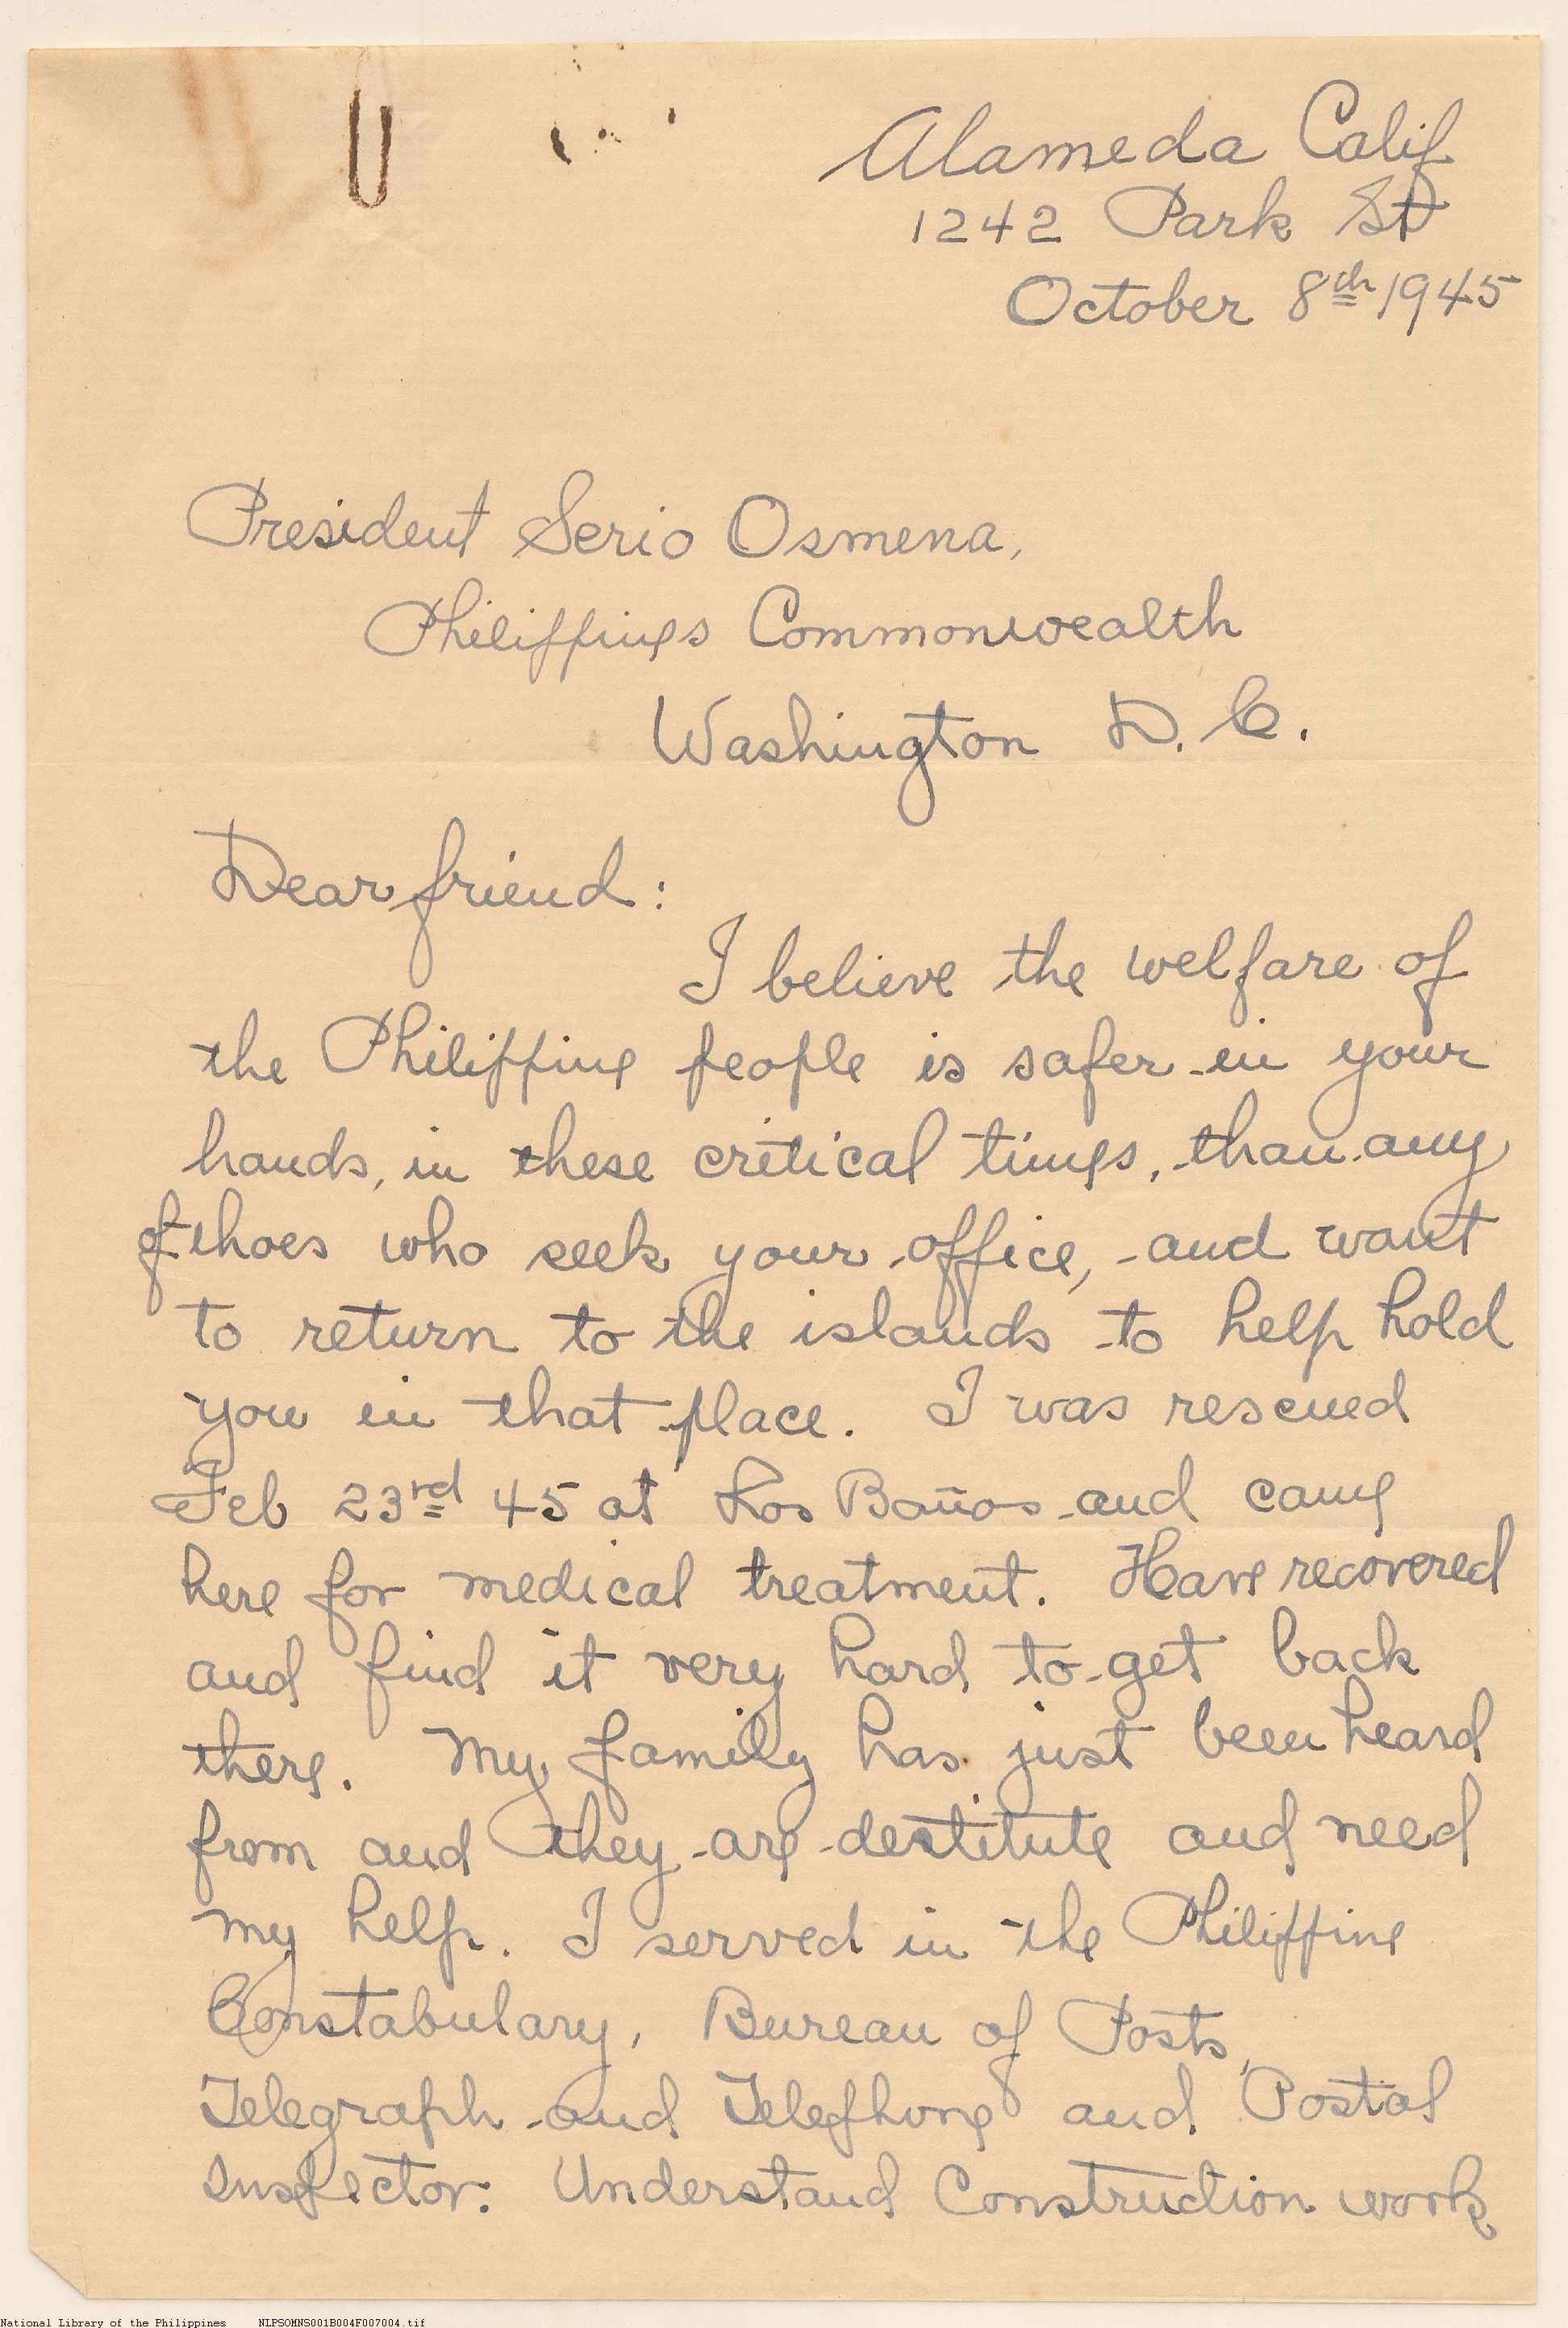 Alameda Calif
1242 Park St
October 8th 1945
President Serio Osmena,
Philippines Commonwealth
Washington D. C.
Dear friend:
I believe the welfare of
the Philippine people is safer in your
hands, in these critical times, than any
of thoes who seek your office, and want
to return to the islands to help hold
you in that place. I was rescued
Feb 23rd 45 at Los Baños and came
here for medical treatment. Have recovered
and find it very hard to get back
there. My family has just been heard
from and they are destitute and need
my help. I served in the Philippine
Constabulary, Bureau of Posts,
Telegraph and Telephone and Postal
Inspector. Understand Construction work
National Library of the Philippines NLPSOMNS001B004F007004.tif